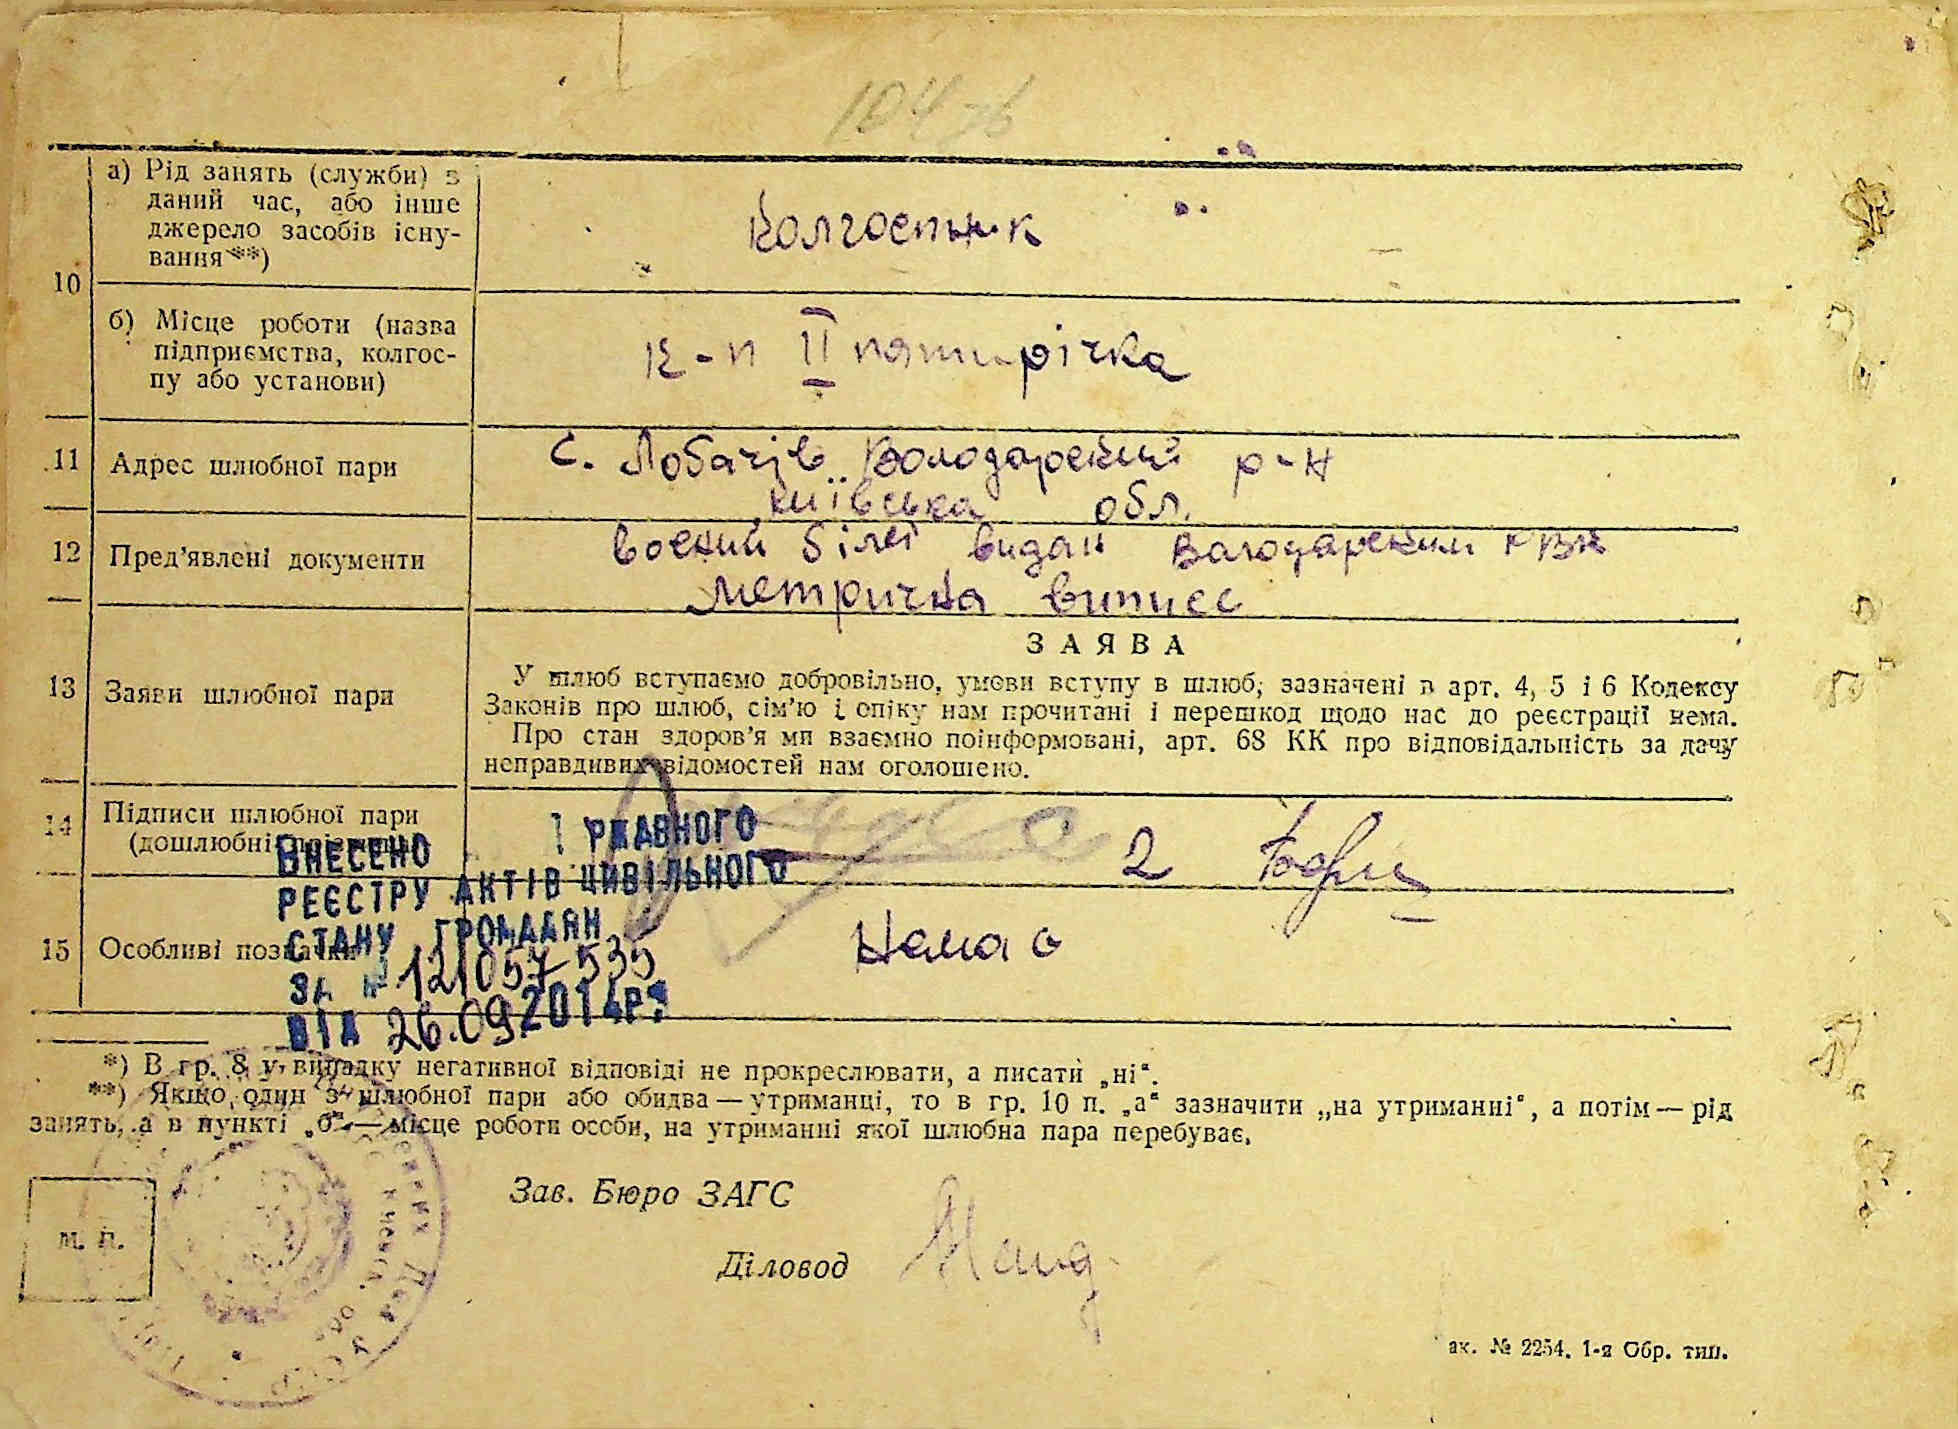 а) Рід занять (служби) в
даний час, або інше
джерело засобів існу-
вання **)
Колгоспник
10
б) Місце роботи (назва
підприємства, колгос-
пу або установи)
к-п ІІ пятирічка
11 Адрес шлюбної пари
с. Лобачів Володарський р-н
київська обл.
12 Пред’явлені документи
Воєний білєт видан Володарским РВК
метрична випись
13 Заяви шлюбної пари
ЗАЯВА
У шлюб вступаємо добровільно, умови вступу в шлюб, зазначені в арт. 4, 5 і 6 Кодексу
Законів про шлюб, сім’ю і опіку нам прочитані і перешкод щодо нас до реєстрації нема.
Про стан здоров’я ми взаємно поінформовані, арт. 68 КК про відповідальність за дачу
неправдивих відомостей нам оголошено.
14 Підписи шлюбної пари
(дошлюбні
2
ВНЕСЕНО РЖАВНОГО
РЕЄСТРУ АКТІВ ЦИВІЛЬНОГО
СТАНУ ГРОМАДЯН
ЗА № 121057535
ВІД 26.09.2014Р.
15 Особливі позначки
Немає
*) В гр. 8 у випадку негативної відповіді не прокреслювати, а писати „ні“.
**) Якщо один з шлюбної пари або обидва — утриманці, то в гр. 10 п. „а“ зазначити „на утриманні“, а потім — рід
занять, а в пункті „б“ — місце роботи особи, на утриманні якої шлюбна пара перебуває.
Зав. Бюро ЗАГС
М. П.
Діловод
ак. № 2254. 1-я Обр. тип.